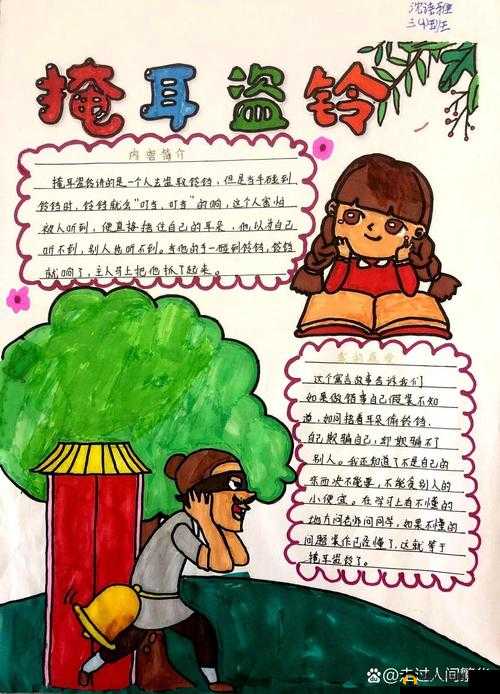 沈语雅
三(4)班
掩耳盗铃
内容简介
掩耳盗铃讲的是一个人去盗取铃铛，但是当手碰到
铃铛时，铃铛就会"叮当，叮当"的响，这个人害怕
被人听到，便直接捂住自己的耳朵，他以为自己
听不到，别人也听不到。当他的手一碰到铃铛，铃铛
就响了，主人马上把他抓了起来。
我的感受
这个寓言故事告诉我们
如果做错事自己假装不知
道，如同捂着耳朵偷铃铛，
自己欺骗自己，却欺骗不了
别人。我还知道了不是自己的
东西决不能要，不能贪别人的
小便宜。在学习上有不懂的
地方问老师问同学，如果不懂的
问题装作已经懂了，这就等于
掩耳盗铃了。
走过人间繁华